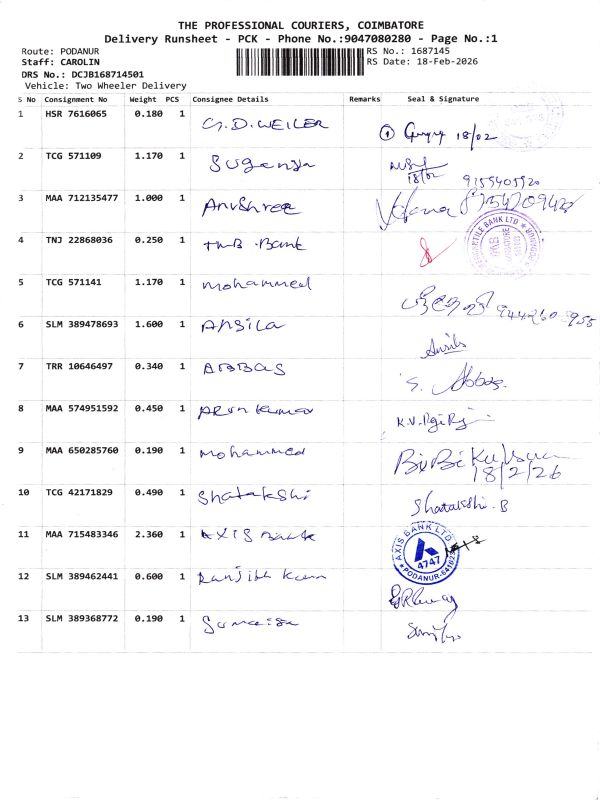 THE PROFESSIONAL COURIERS, COIMBATORE
Delivery Runsheet - PCK - Phone No.:9047080280 - Page No.:1
Route: PODANUR
RS No.: 1687145
Staff: CAROLIN
RS Date: 18-Feb-2026
DRS No.: DCJB168714501
Vehicle: Two Wheeler Delivery
S No Consignment No Weight PCS Consignee Details Remarks Seal & Signature
1 HSR 7616065 0.180 1 G.D.WEILER 1 18/02
2 TCG 571109 1.170 1 Suganya 18/02 9159405920
3 MAA 712135477 1.000 1 Anushree
4 TNJ 22868036 0.250 1 TMB .Bank
5 TCG 571141 1.170 1 mohammed
6 SLM 389478693 1.600 1 Ansila
7 TRR 10646497 0.340 1 ABBAS S. Abbas.
8 MAA 574951592 0.450 1 Arun kumar
9 MAA 650285760 0.190 1 mohammed BiBi 18/2/26
10 TCG 42171829 0.490 1 Shatakshi Shatakshi.B
11 MAA 715483346 2.360 1 AXIS Bank AXIS BANK LTD 4747 PODANUR-641023
12 SLM 389462441 0.600 1 Ranjith
13 SLM 389368772 0.190 1 Sumaisa